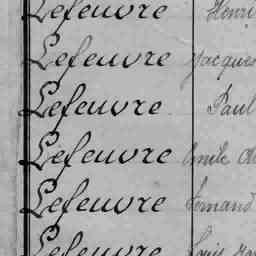 Lefeuvre Henri
Lefeuvre Jacques
Lefeuvre Paul
Lefeuvre Emile
Lefeuvre Fernand
Lefeuvre Louis